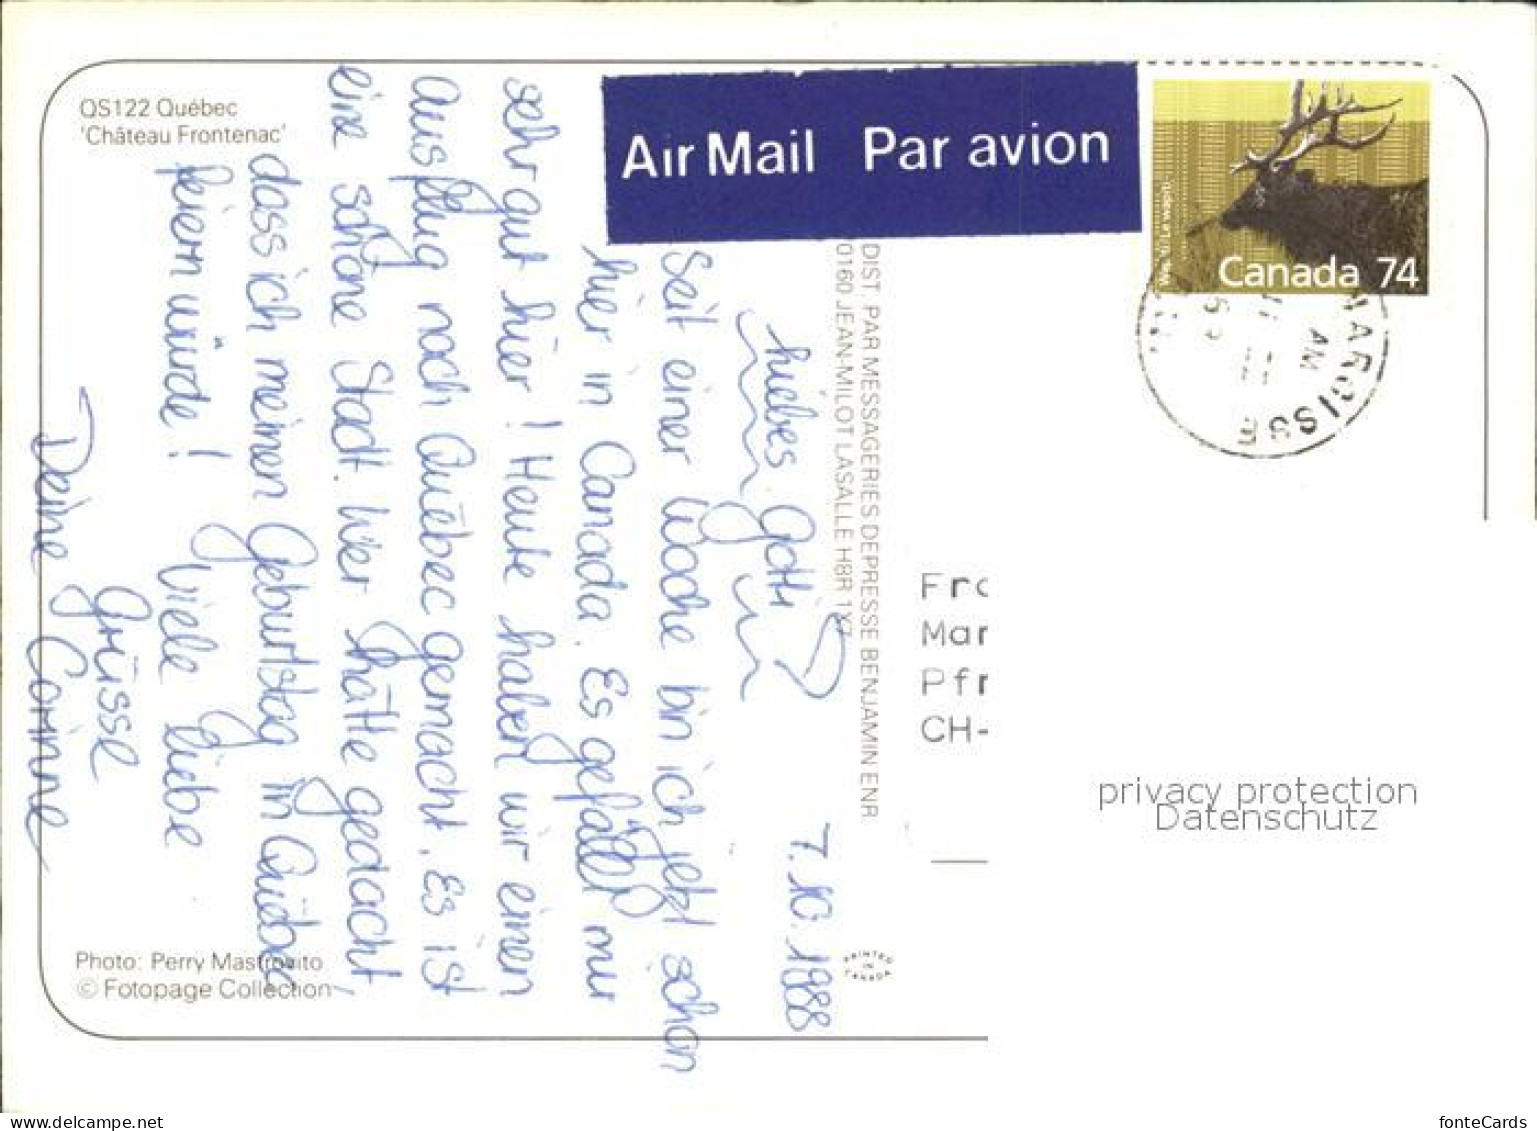 QS122 Québec
'Château Frontenac'
Air Mail Par avion
Wapiti Le wapiti
Canada 74
AM
DIST. PAR MESSAGERIES DEPRESSE BENJAMIN ENR
0160 JEAN-MILOT LASALLE H8R 1X7
7.10.1988
Liebes Gotti
Seit einer Woche bin ich jetzt schon
hier in Canada. Es gefällt mir
sehr gut hier! Heute haben wir einen
Ausflug nach Québec gemacht. Es ist
eine schöne Stadt. Wer hätte gedacht,
dass ich meinen Geburtstag in Québec
feiern würde! Viele liebe
Grüsse
Deine Corinne
Fr
Mar
Pfr
CH-
privacy protection
Datenschutz
PRINTED
IN
CANADA
Photo: Perry Mastrovito
© Fotopage Collection
www.delcampe.net
fonteCards